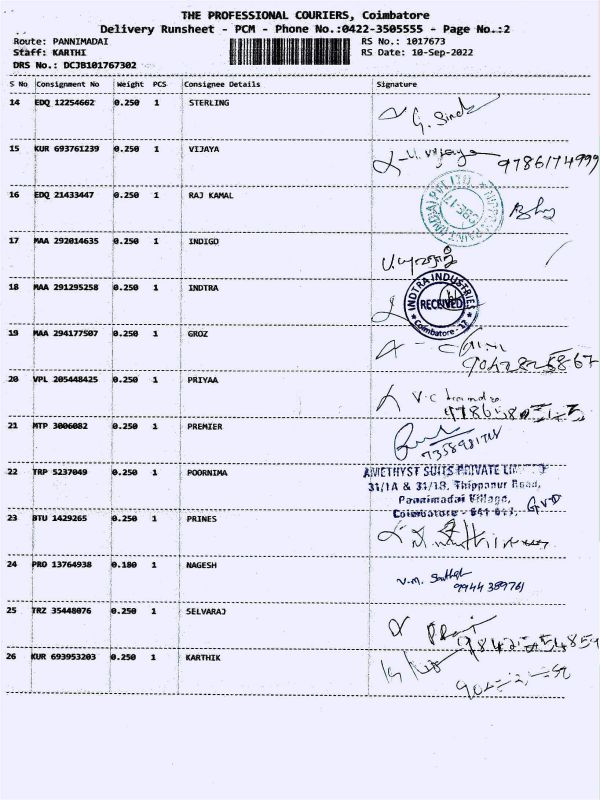 THE PROFESSIONAL COURIERS, Coimbatore
Delivery Runsheet - PCM - Phone No.:0422-3505555 - Page No.:2
Route: PANNIMADAI RS No.: 1017673
Staff: KARTHI RS Date: 10-Sep-2022
DRS No.: DCJB101767302
S No Consignment No Weight PCS Consignee Details Signature
14 EDQ 12254662 0.250 1 STERLING
15 KUR 693761239 0.250 1 VIJAYA 9786174999
16 EDQ 21433447 0.250 1 RAJ KAMAL
17 MAA 292014635 0.250 1 INDIGO
18 MAA 291295258 0.250 1 INDTRA
INDTRA INDUSTRIES
RECEIVED
Coimbatore - 17
19 MAA 294177507 0.250 1 GROZ
20 VPL 205448425 0.250 1 PRIYAA
21 MTP 3006082 0.250 1 PREMIER
22 TRP 5237049 0.250 1 POORNIMA
AMETHYST SUITS PRIVATE
31/1A & 31/1B, Thippanur Road,
Pannimadai Village,
Coimbatore - 641 017.
23 BTU 1429265 0.250 1 PRINES
24 PRO 13764938 0.180 1 NAGESH
9944389761
25 TRZ 35448076 0.250 1 SELVARAJ
26 KUR 693953203 0.250 1 KARTHIK